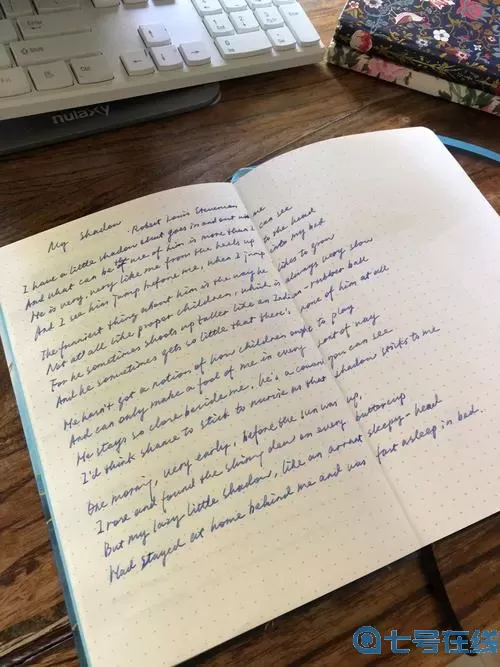 nulaxy
Enter
Shift
Fn
Ctrl
My Shadow · Robert Louis Stevenson
I have a little shadow that goes in and out with me
And what can be the of him is more than I can see
He is very, very like me from the heels up to the head
And I see him jump before me, when I jump into my bed
The funniest thing about him is the way he likes to grow
Not at all like proper children, which is always very slow
For he sometimes shoots up taller like an India-rubber ball
And he sometimes gets so little that there's none of him at all
He hasn't got a notion of how children ought to play
And can only make a fool of me in every sort of way
He stays so close beside me, he's a coward you can see
I'd think shame to stick to nursie as that shadow sticks to me
One morning, very early, before the sun was up,
I rose and found the shiny dew on every buttercup
But my lazy little shadow, like an arrant sleepy-head
Had stayed at home behind me and was fast asleep in bed.
七号在线